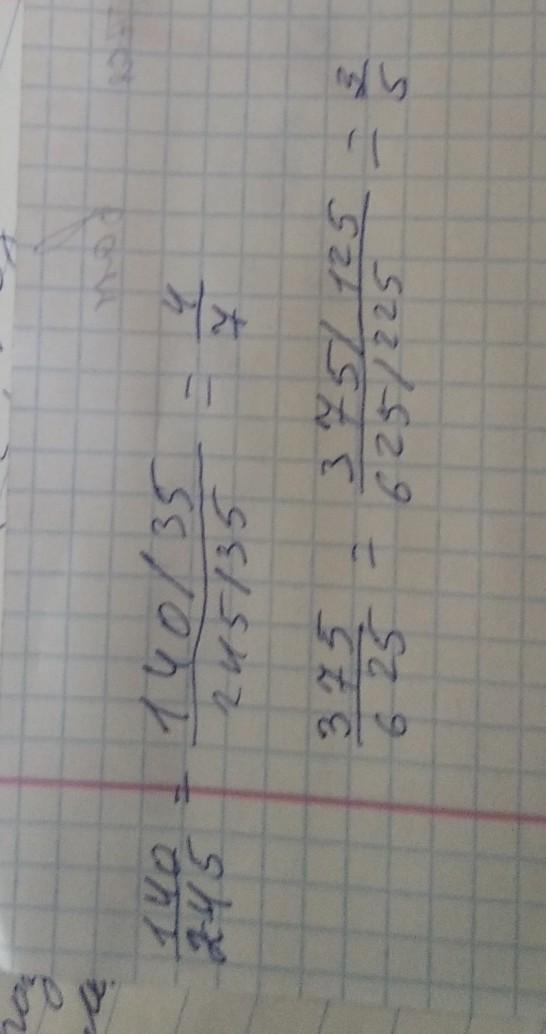 140/245 = 140/35 / 245/35 = 4/7
375/625 = 375/125 / 625/225 = 3/5